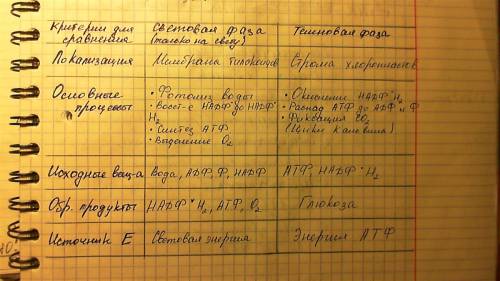 Критерии для сравнения
Световая фаза (только на свету)
Темновая фаза
Локализация
Мембрана тилакоидов
Строма хлоропластов
Основные процессы
• Фотолиз воды
• Восст-е НАДФ⁺ до НАДФ*H₂
• Синтез АТФ
• Выделение O₂
• Окисление НАДФ*H₂
• Распад АТФ до АДФ и Ф
• Фиксация CO₂
(Цикл Кальвина)
Исходные вещ-а
Вода, АДФ, Ф, НАДФ
АТФ, НАДФ*H₂
Обр. продукты
НАДФ*H₂, АТФ, O₂
Глюкоза
Источник E
Световая энергия
Энергия АТФ